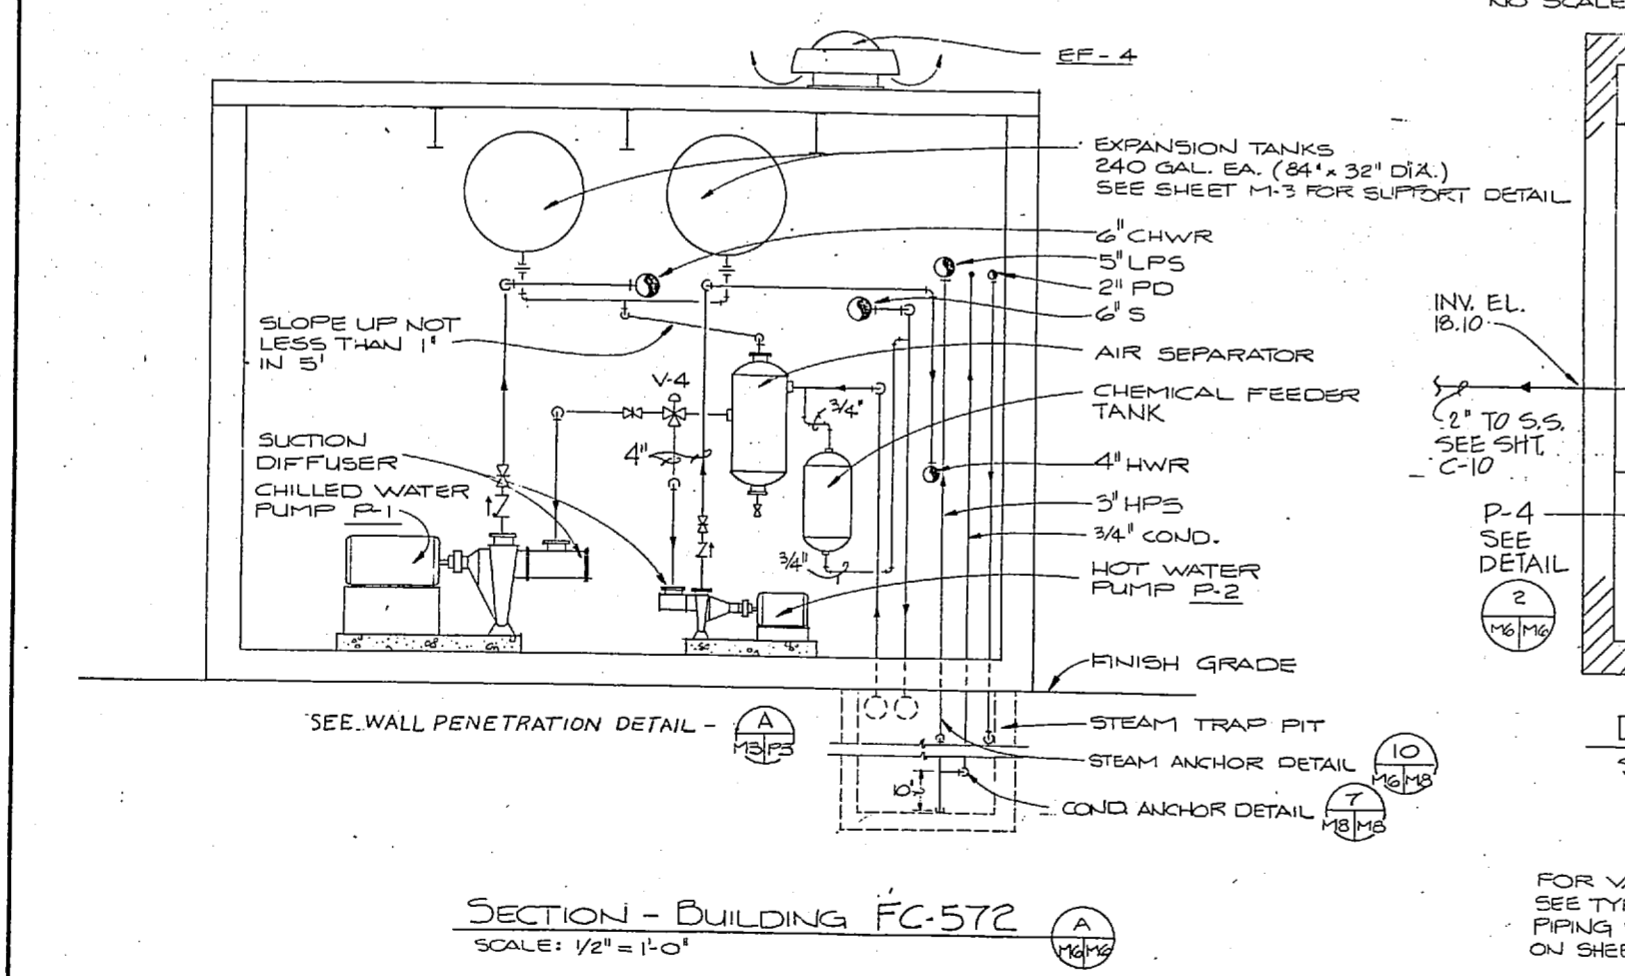 NO SCALE
EF-4
EXPANSION TANKS
240 GAL. EA. (84" x 32" DIA.)
SEE SHEET M-3 FOR SUPPORT DETAIL
6" CHWR
5" LPS
2" PD
6" S
AIR SEPARATOR
CHEMICAL FEEDER
TANK
4" HWR
3" HPS
3/4" COND.
HOT WATER
PUMP P-2
FINISH GRADE
STEAM TRAP PIT
STEAM ANCHOR DETAIL
10
M6 M8
COND. ANCHOR DETAIL
7
M8 M8
SLOPE UP NOT
LESS THAN 1"
IN 5'
V-4
3/4"
4"
3/4"
SUCTION
DIFFUSER
CHILLED WATER
PUMP P-1
SEE WALL PENETRATION DETAIL -
A
M3 P3
10"
INV. EL.
18.10
2" TO S.S.
SEE SHT.
C-10
P-4
SEE
DETAIL
2
M6 M6
SECTION - BUILDING FC-572
SCALE: 1/2" = 1'-0"
A
M6 M6
FOR
SEE
PIPING
ON